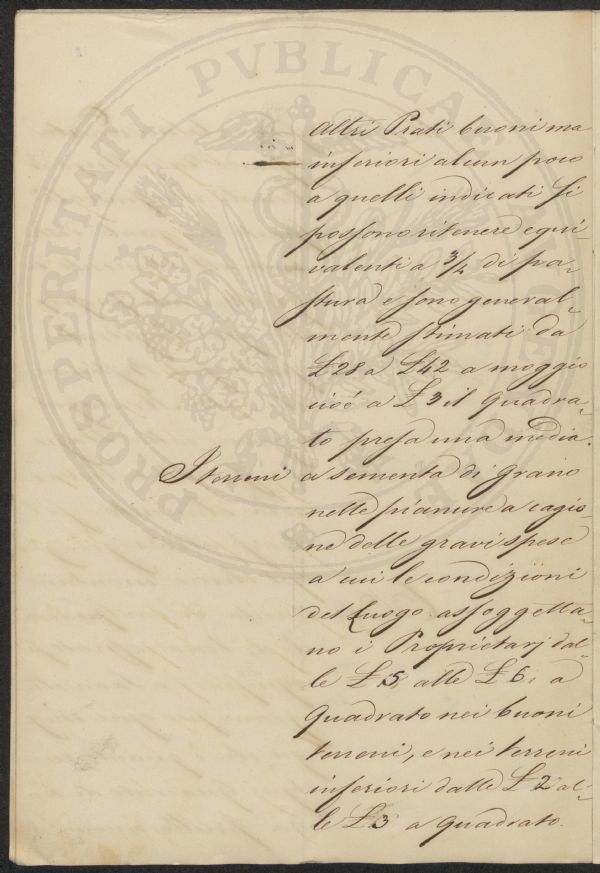 PROSPERITATI PVBLICAE
Altri Prati buoni ma
inferiori alcun poco
a quelli indicati si
possono ritenere equi-
valenti a 3/4 di pa-
stura e sono general-
mente stimati da
£28 a £42 a moggio
cioé a £3 il Quadra-
to presa una media.
I terreni a sementa di Grano
nelle pianure a cagio-
ne delle gravi spese
a cui le condizioni
del Luogo assoggetta-
no i Proprietarj dal-
le £5, alle £6, a
Quadrato nei buoni
terreni, e nei terreni
inferiori dalle £2 al-
le £3 a Quadrato.